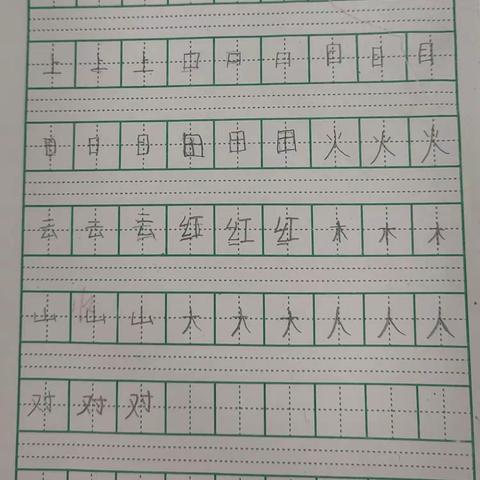 上上上口口口目目目
日日日田田田火火火
云云云红红红木木木
山山山大大大人人人
对对对